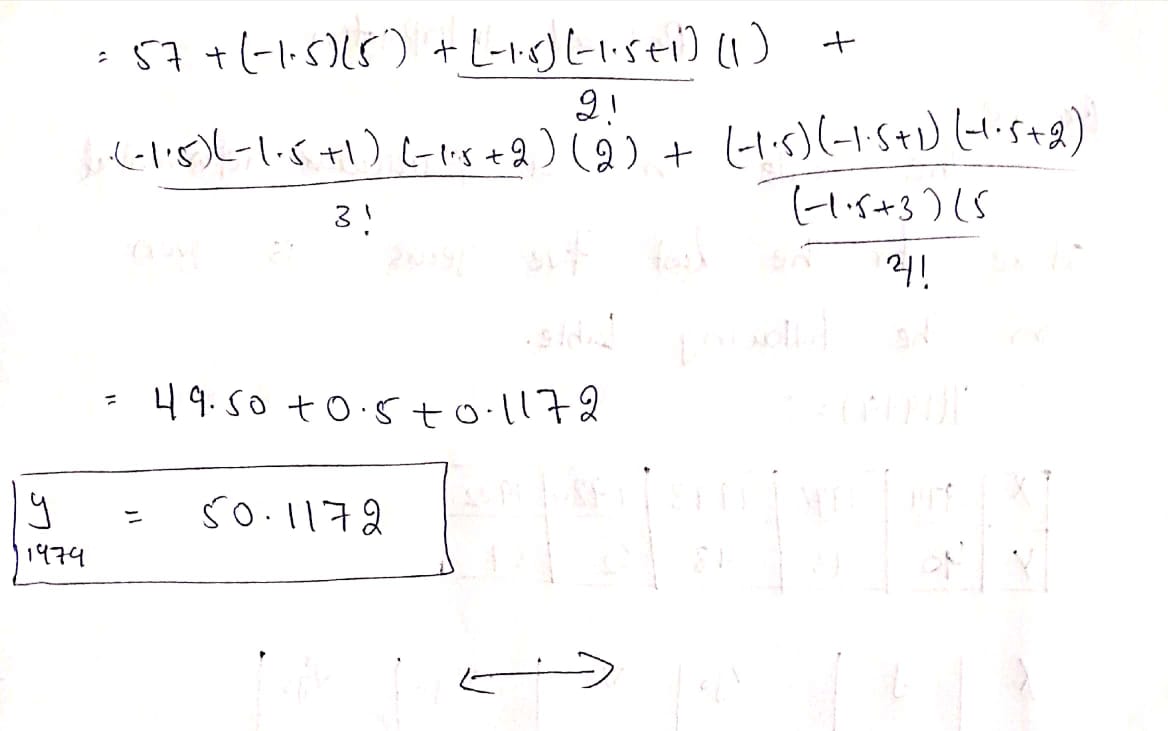 = 57 + (-1.5)(5) + (-1.5)(-1.5+1)(1) +
2!
(-1.5)(-1.5+1)(-1.5+2)(2) + (-1.5)(-1.5+1)(-1.5+2)
3!
(-1.5+3)(5
4!
= 49.50 + 0.5 + 0.1172
y = 50.1172
1979